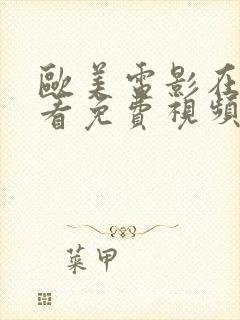 歐美雷影在
看免費視頻
菜甲